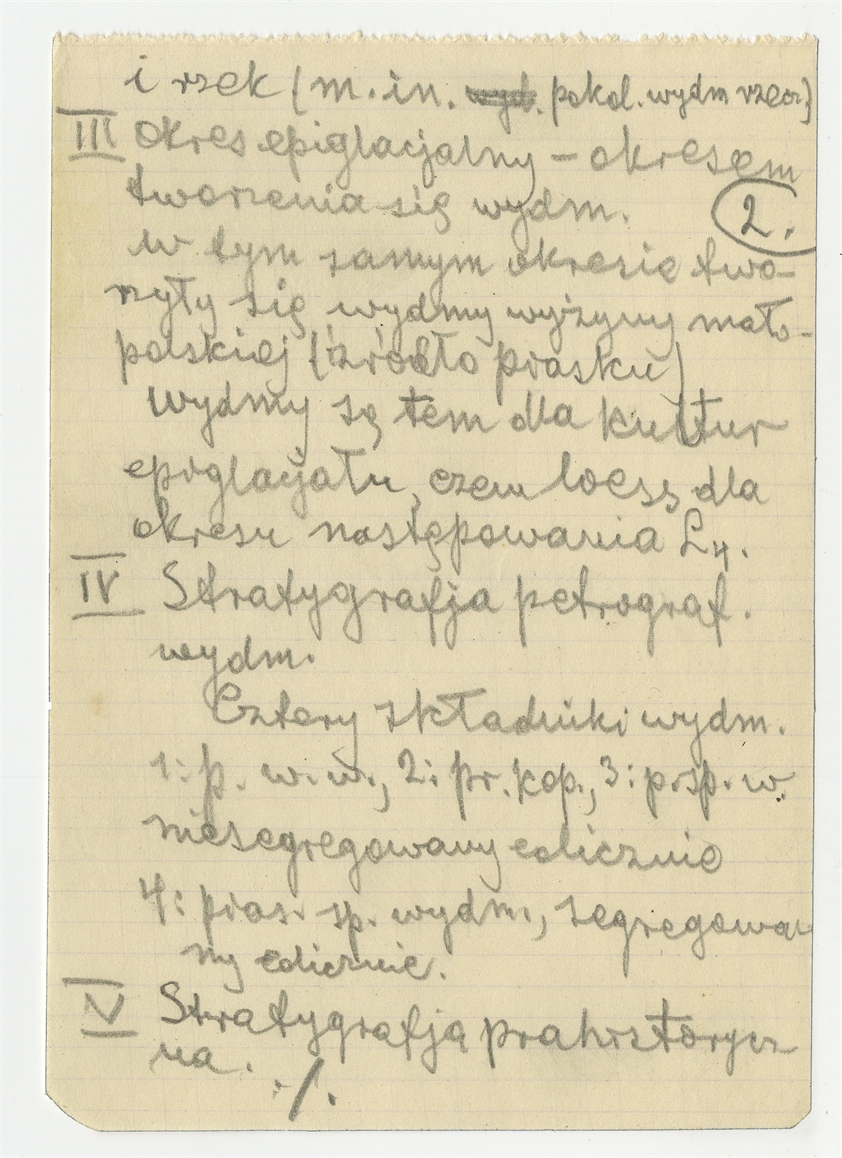 i rzek (m. in. pokol. wydm rzecz.)
III Okres epiglacjalny – okresem
tworzenia się wydm.
2.
W tym samym okresie two-
rzyły się wydmy wyżyny mało-
polskiej (źródło piasku)
Wydmy są tem dla kultur
epiglacjału, czem loess dla
okresu następowania L4.
IV Stratygrafja petrograf.
wydm.
Cztery składniki wydm.
1: p. w. w., 2: pr. kop., 3: p. sp. w.
niesegregowany eolicznie
4: pias. sp. wydm., segregowa
ny eolicznie.
V Stratygrafja prahistorycz
na.
./.